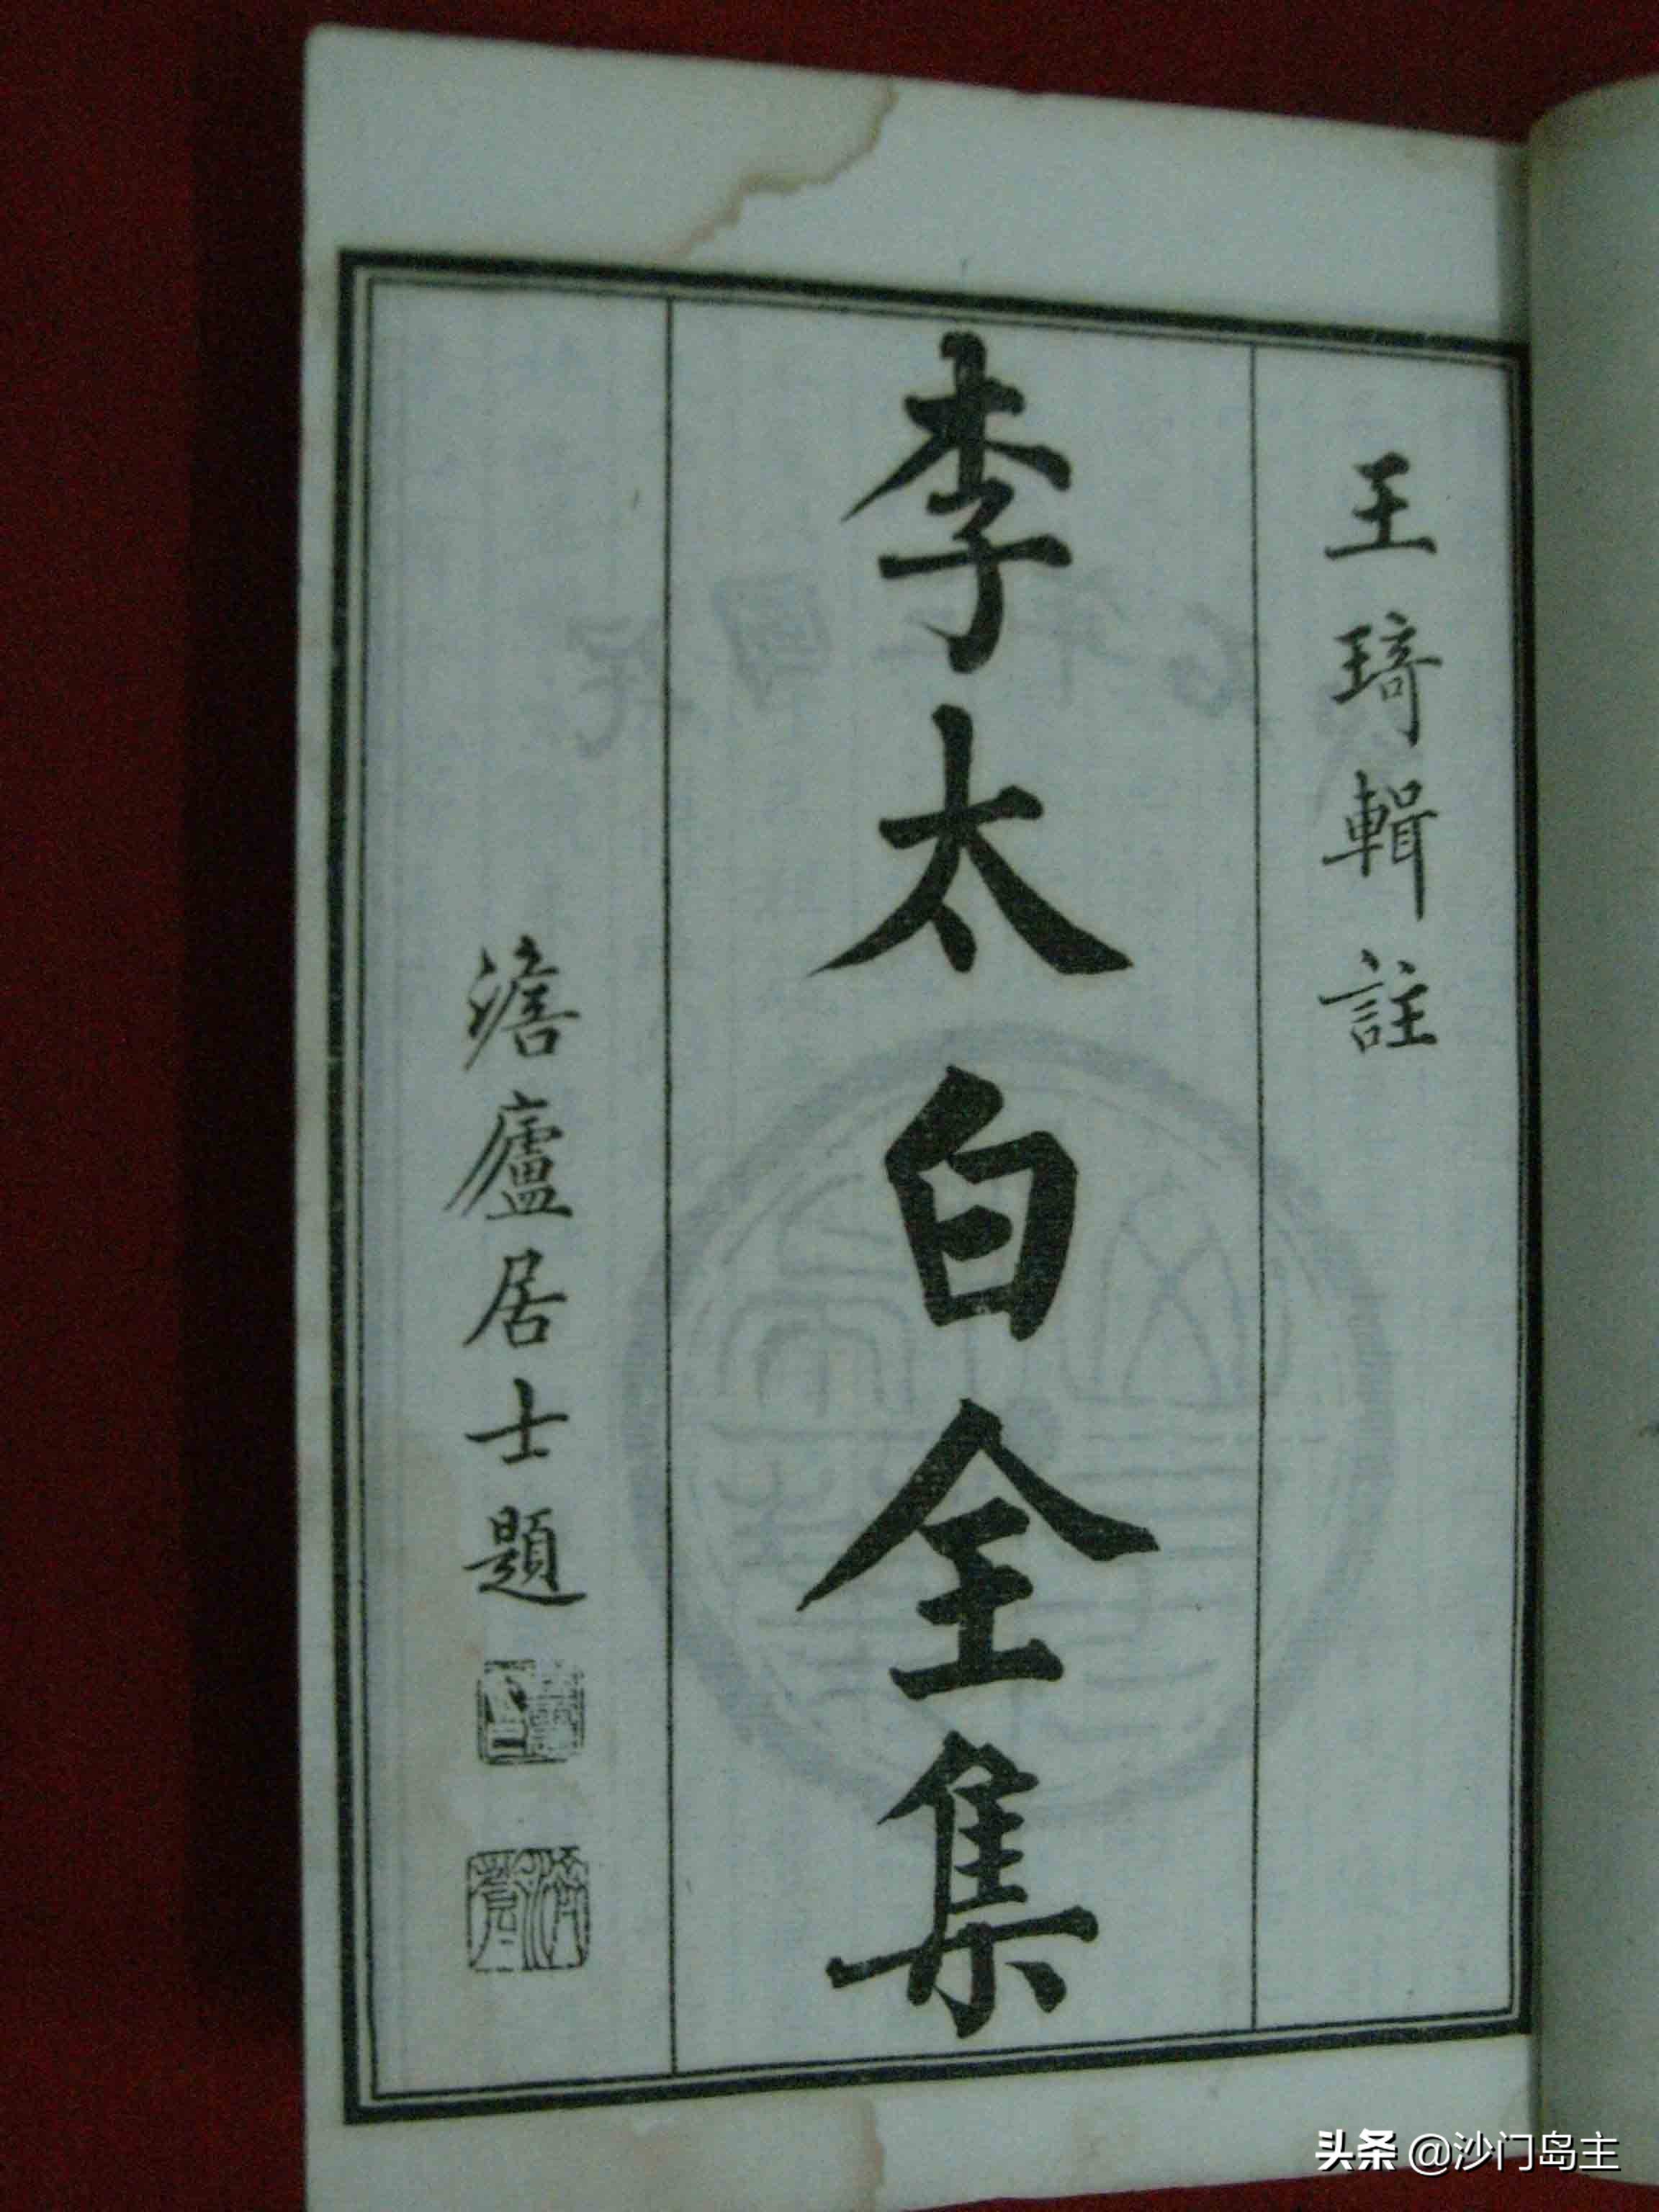 王琦輯註
李太白全集
澹廬居士題
头条 @沙门岛主